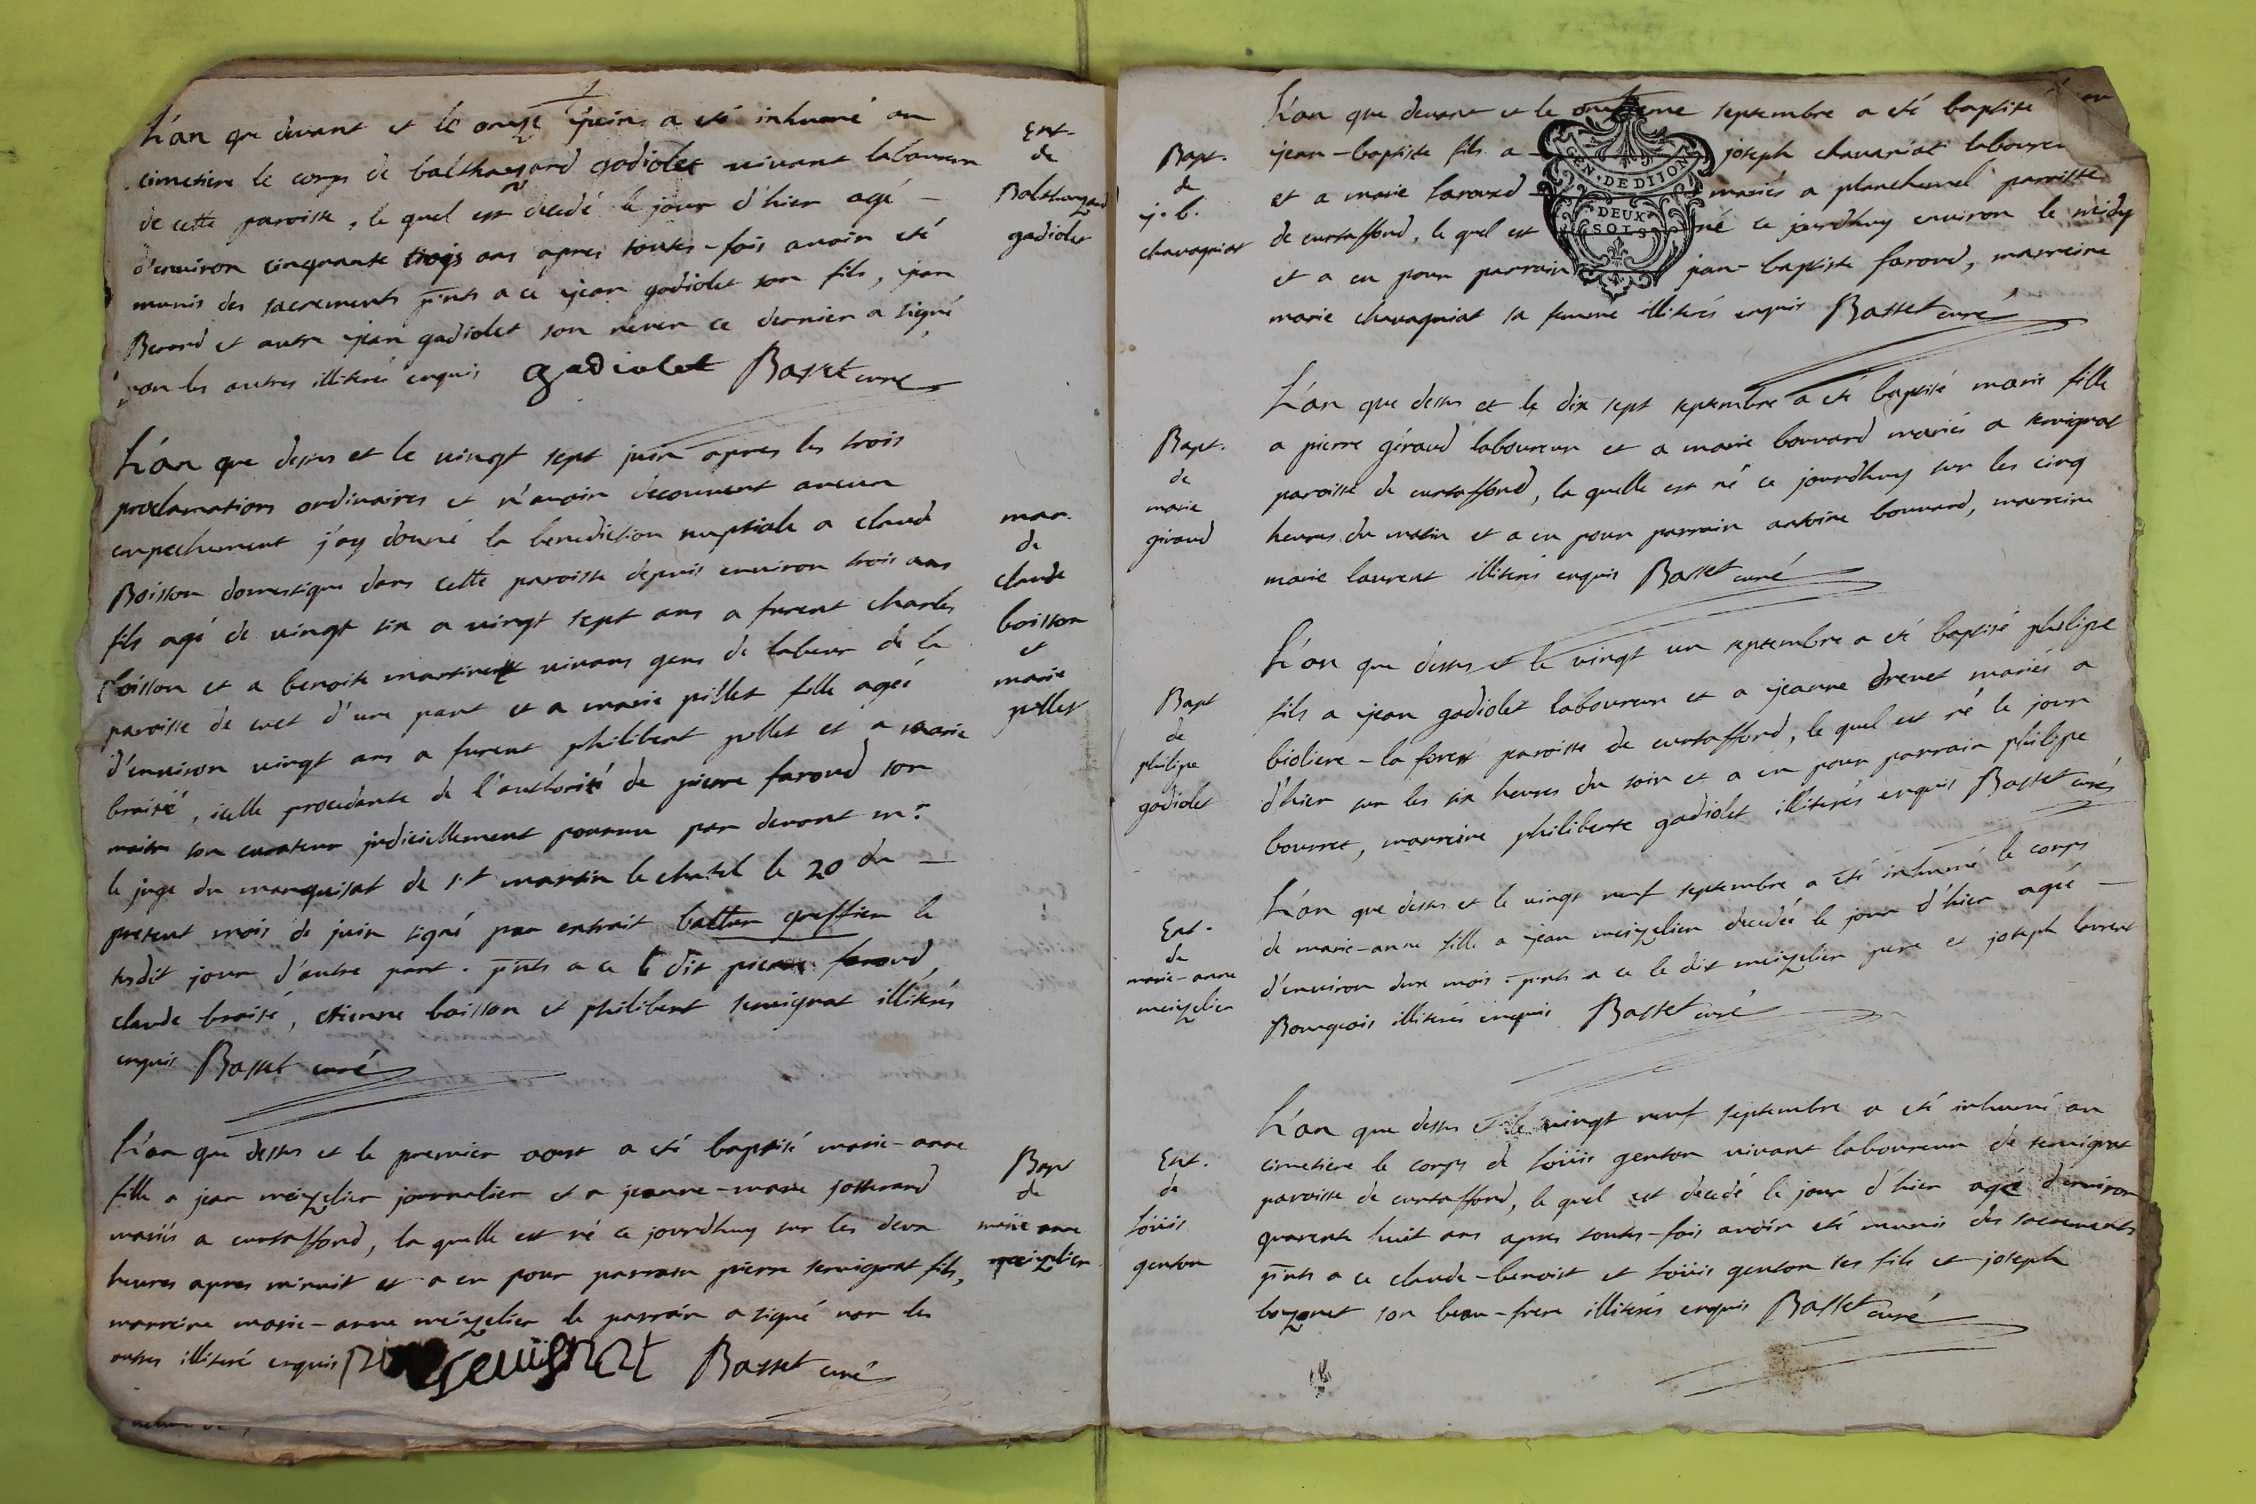 L'an que devant et le onze juin a eté inhumé au
cimetiere le corps de balthazard gadiolet vivant laboureur
de cette paroisse, le quel est decedé le jour d'hier agé –
d'environ cinquante trois ans apres toutes-fois avoir eté
munis des sacrements pnts a ce jean gadiolet son fils, jean
Berard et autre jean gadiolet son neveu ce dernier a signé
non les autres illiterés enquis gadiolet Basset curé
Ent.
de
Balthazard
gadiolet
L'an que dessus et le vingt sept juin apres les trois
proclamations ordinaires et n'avoir decouvert aucun
empechement j'ay donné la benediction nuptiale a claude
Boisson domestique dans cette paroisse depuis environ trois ans
fils agé de vingt six a vingt sept ans a furent charles
boisson et a benoite martinet vivans gens de labeur de la
paroisse de cuet d'une part et a marie pillet fille agée
d'environ vingt ans a furent philibert pillet et a marie
braisé, icelle procedante de l'authorité de pierre faroud son
maitre son curateur judiciellement pourvu par devant mr
le juge du marquisat de st martin le chatel le 20 du –
present mois de juin signé par extrait greffier le
susdit jour d'autre part. pnts a ce le dit pierre faroud
claude braisé, etienne boisson et philibert servignat illiterés
enquis Basset curé
mar.
de
claude
boisson
et
marie
pillet
L'an que dessus et le premier aoust a eté baptisé marie-anne
fille a jean meizelier journalier et a jeanne-marie josserand
mariés a curtafford, la quelle est né ce jourdhuy sur les deux
heures apres minuit et a eu pour parrain pierre servignat fils,
marreine marie-anne meizelier le parrain a signé non les
autres illiteré enquis servignat Basset curé
Bapt
de
marie anne
meizelier
L'an que devant et le onzieme septembre a eté baptisé
jean-baptiste fils a joseph chavagniat laboureur
et a marie faroud mariés a planchemel paroisse
de curtafford, le quel est né ce jourdhuy environ le midy
et a eu pour parrain jean-baptiste faroud, marreine
marie chavagniat sa femme illiterés enquis Basset curé
GEN. DE DIJON
DEUX
SOLS
Bapt.
de
j. b.
chavagniat
L'an que dessus et le dix sept septembre a eté baptisé marie fille
a pierre géraud laboureur et a marie bouvard mariés a servignat
paroisse de curtafford, la quelle est né ce jourdhuy sur les cinq
heures du matin et a eu pour parrain antoine bouvard, marreine
marie laurent illiterés enquis Basset curé
Bapt.
de
marie
giraud
L'an que dessus et le vingt un septembre a eté baptisé philipe
fils a jean gadiolet laboureur et a jeanne drevet mariés a
bioliere-la forest paroisse de curtafford, le quel est né le jour
d'hier sur les six heures du soir et a eu pour parrain philipe
bourret, marreine philiberte gadiolet illiterés enquis Basset curé
Bapt
de
philipe
gadiolet
L'an que dessus et le vingt neuf septembre a eté inhumé le corps
de marie-anne fille a jean meizelier decedée le jour d'hier agée –
d'environ deux mois. pnts a ce le dit meizelier pere et joseph laurent
Bourgeois illiterés enquis Basset curé
Ent.
de
marie-anne
meizelier
L'an que dessus et le vingt neuf septembre a eté inhumé au
cimetiere le corps de loüis genton vivant laboureur de servignat
paroisse de curtafford, le quel est decedé le jour d'hier agé d'environ
quarente huit ans apres toutes-fois avoir eté munis des sacrements
pnts a ce claude-benoist et loüis genton ses fils et joseph
bozonet son beau-frere illiterés enquis Basset curé
Ent.
de
loüis
genton